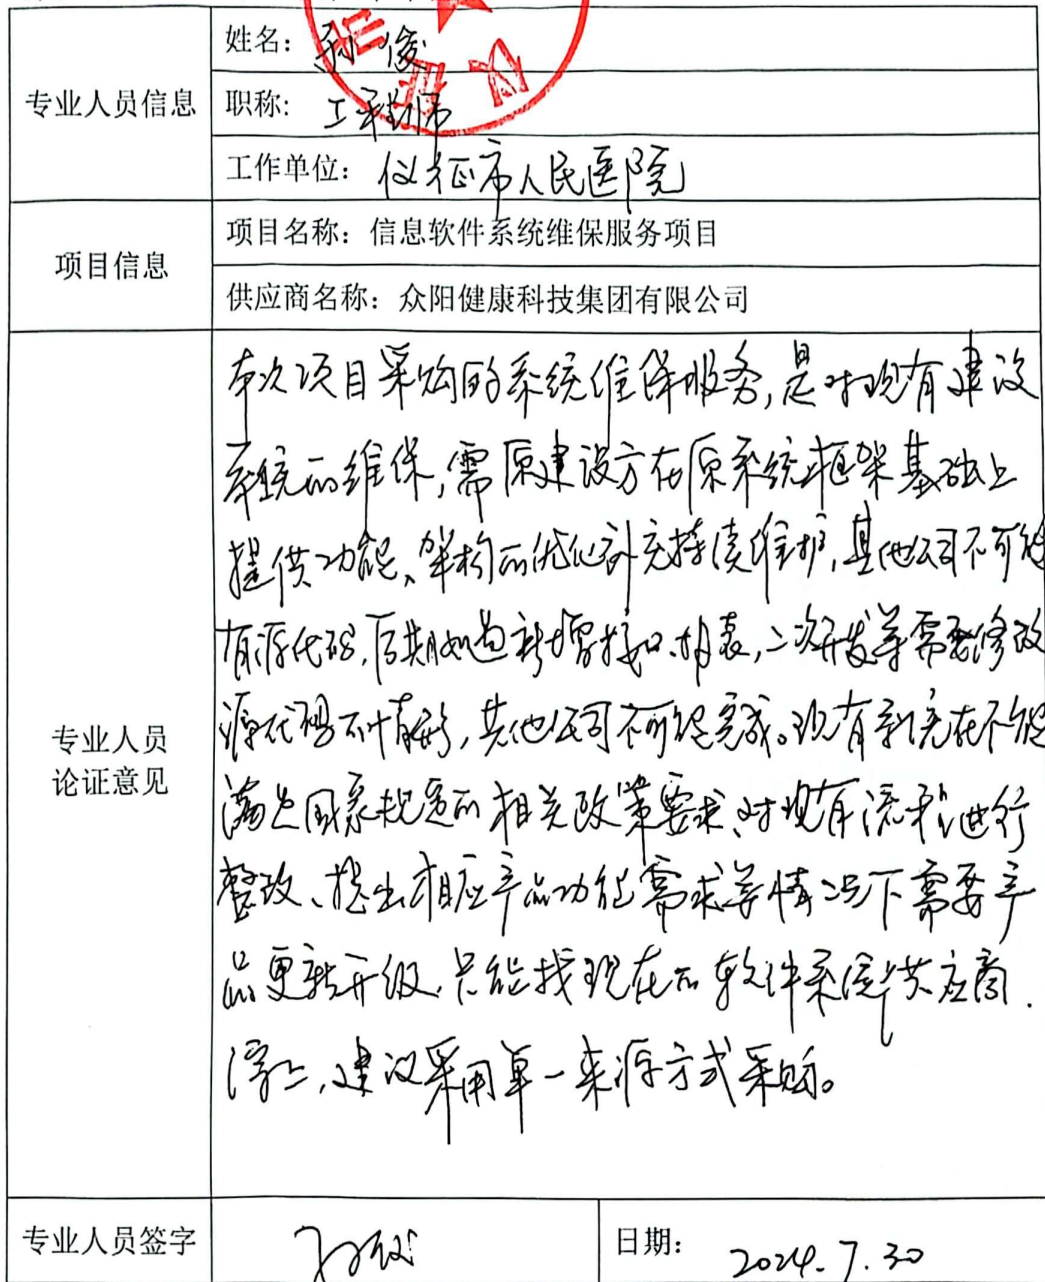 姓名：孙俊
专业人员信息
职称：工程师
工作单位：仪征市人民医院
项目信息
项目名称：信息软件系统维保服务项目
供应商名称：众阳健康科技集团有限公司
专业人员
论证意见
本次项目采购的系统维保服务，是对现有建设
系统的维保，需原建设方在原系统框架基础上
提供功能、架构的优化补充持续维护，其他公司不可能
有源代码，后期如遇新增接口、报表，二次开发等需要修改
源代码的情形，其他公司不可能完成。现有系统在不能
满足国家规定的相关政策要求、对现有流程进行
整改、提出相应产品功能需求等情况下需要产
品更新升级，只能找现在的软件系统供应商．
综上，建议采用单一来源方式采购。
专业人员签字
日期：2024.7.30